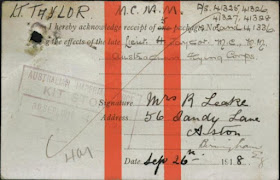 Lt. TAYLOR M.C. M.M. A/S. 41325, 41326
41327, 41328
I hereby acknowledge receipt of packages No. 41336
the effects of the late Lieut. H. Taylor M.C. M.M.
Australian Flying Corps.
AUSTRALIAN
KIT STORE
Signature Mrs R Leake
Address 56 Sandy Lane
Aston
Birmingham
Date Sep 26th 1918.